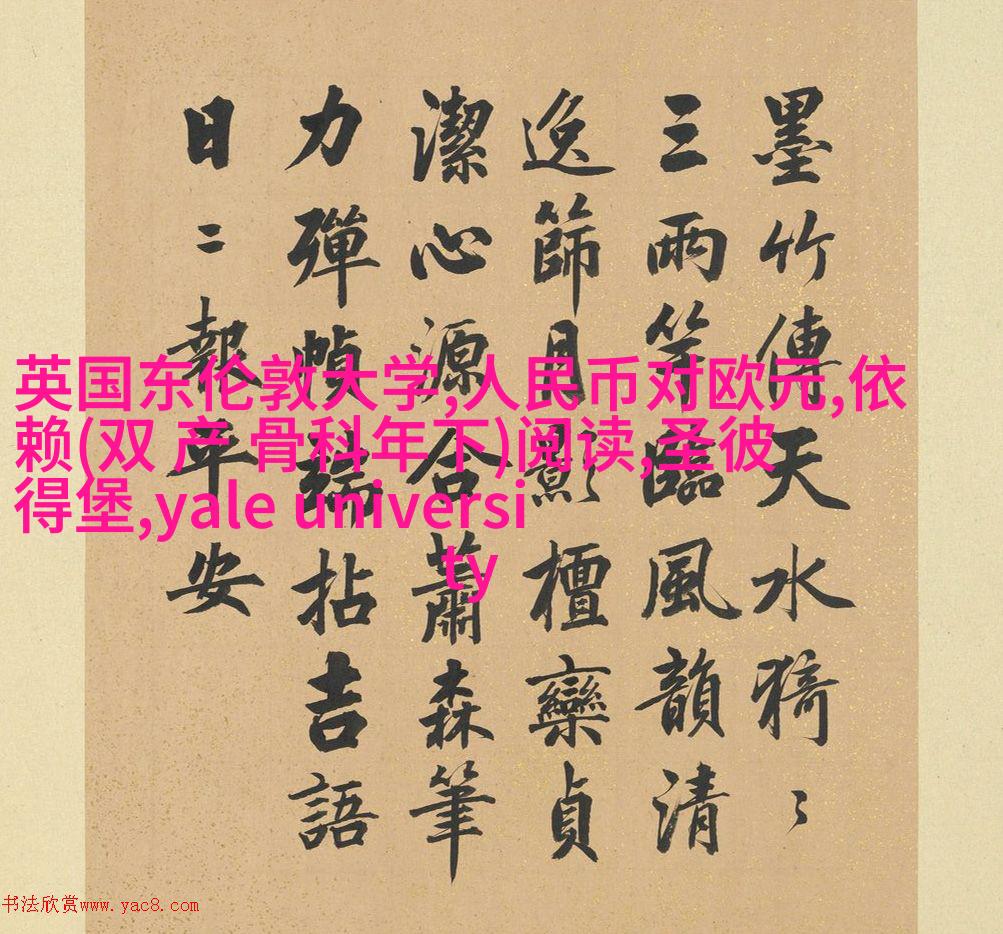 墨竹傳天水猗〻
三兩竿臨風韻清
逸篩月影檀欒貞
潔心源合蕭森筆
力殫幀端拈吉語
日二報平安
英国东伦敦大学,人民币对欧元,依
赖(双 产 骨科年下)阅读,圣彼
得堡,yale universi
ty
书法欣赏www.yac8.com